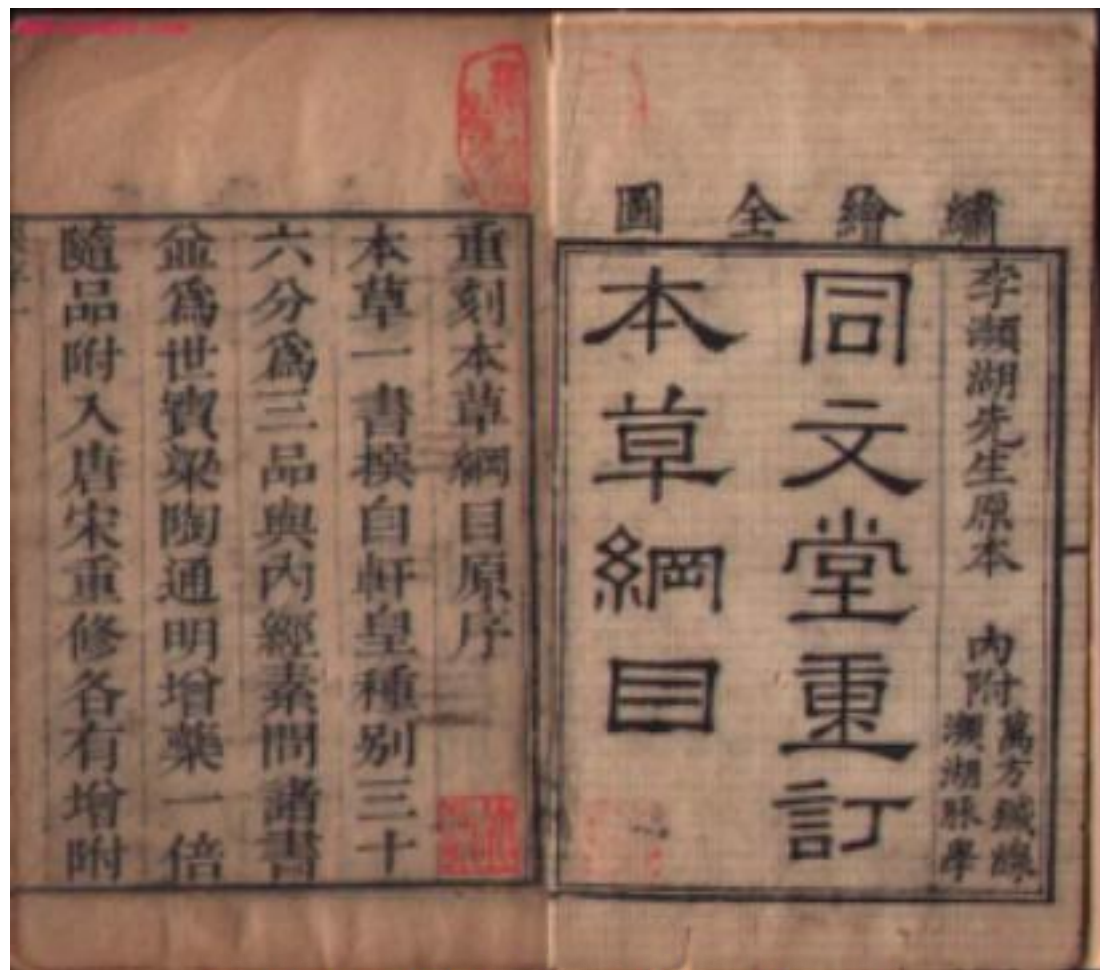 繡繪全圖
李瀕湖先生原本　內附
萬方鍼線
瀕湖脈學
同文堂重訂
本草綱目
重刻本草綱目原序
本草一書撰自軒皇種別三十
六分爲三品與內經素問諸書
並爲世寳梁陶通明增藥一倍
隨品附入唐宋重修各有增附